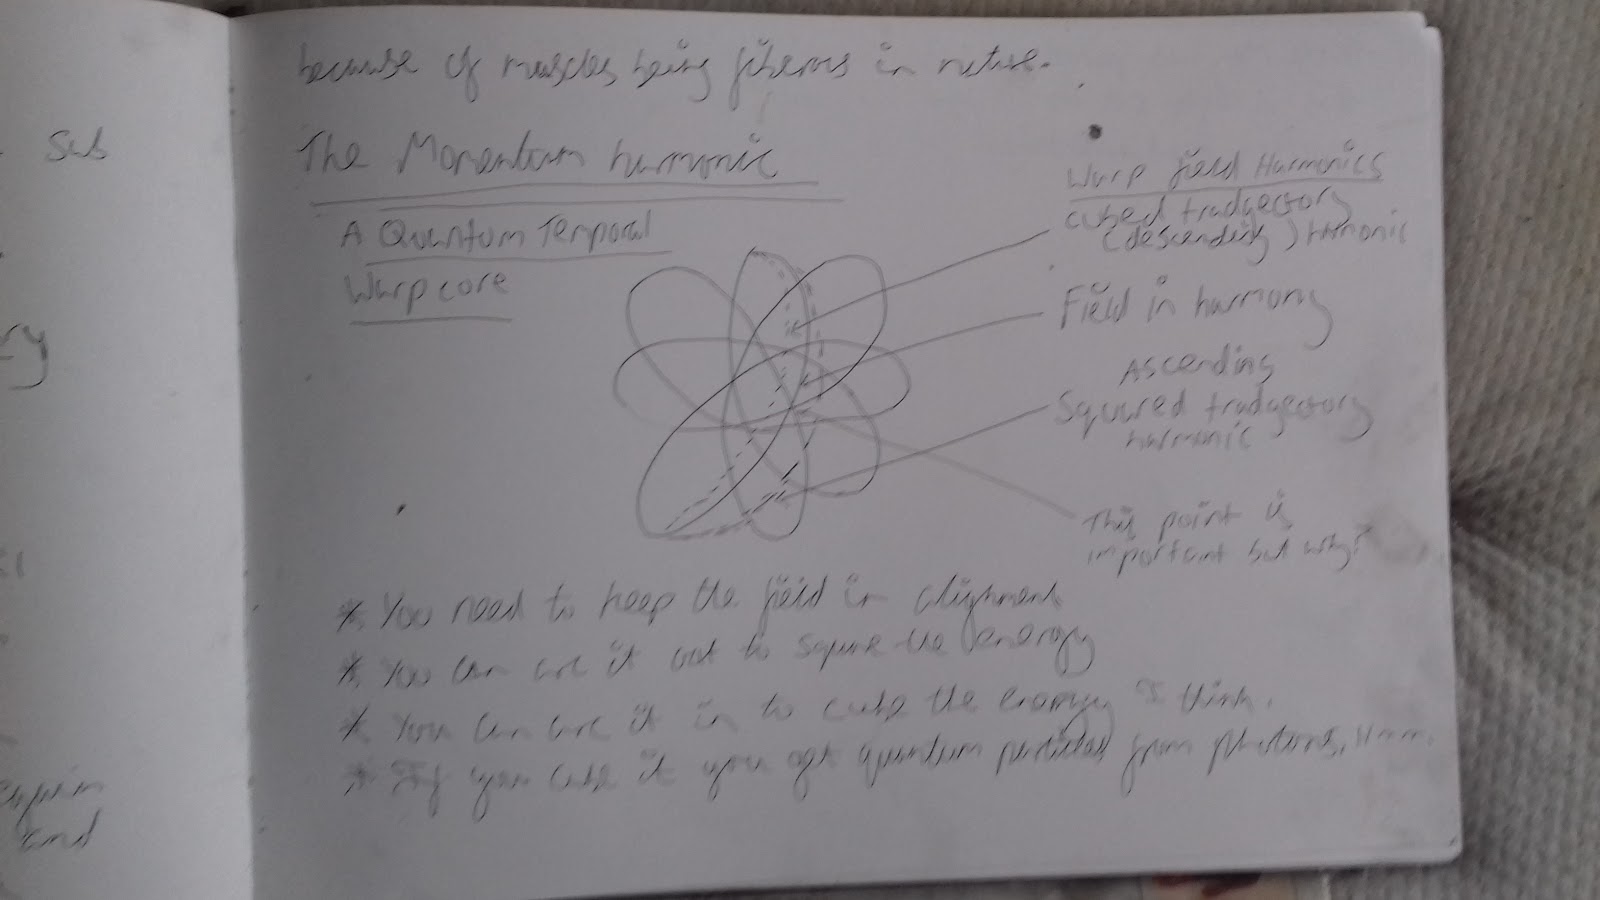 because of muscles being fiberos in nature.
The Momentum harmonic
A Quantum Temporal
Warp core
Warp field Harmonics
cubed tradgectory
(descending) harmonic
Field in harmony
Ascending
Squared tradgectory
harmonic
This point is
important but why?
* You need to keep the field in alighment
* You can arc it out to square the energy
* You can arc it in to cube the energy I think.
* If you cube it you get quantum particles from photons, Hmm.
Sub
ry
and